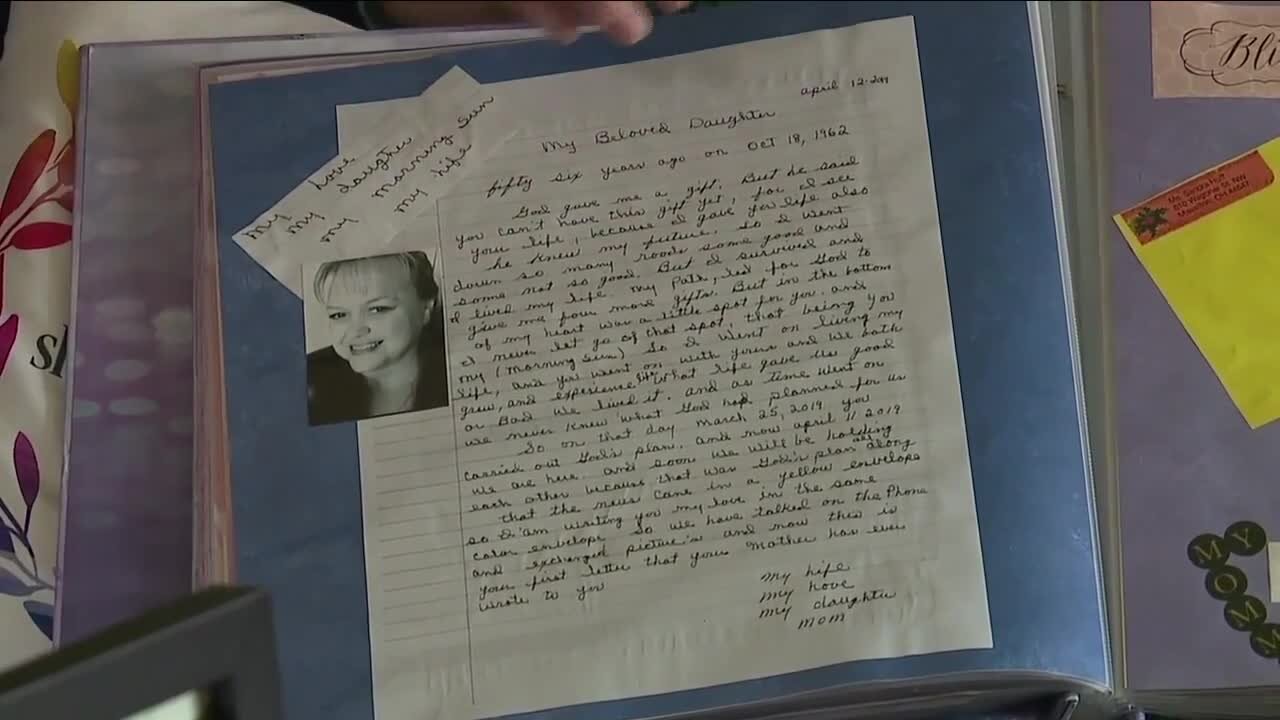 My Love
my daughter
my morning sun
my life
April 12-2019
My Beloved Daughter
fifty six years ago on Oct 18, 1962
God gave me a gift. But he said
you can't have this gift yet, for I see
your life, because I gave you life also
he knew my future. So I went
down so many roads some good and
some not so good. But I survived and
I lived my life. My path, led for God to
give me four more gifts. But in the bottom
of my heart was a little spot for you. and
I never let go of that spot, that being you
my (morning sun) So I went on living my
life, and you went on with yours and we both
grew, and experience what life gave us good
or Bad we lived it. and as time went on
we never knew what God had planned for us
So on that day march 25, 2019 you
carried out God's plan. and now april 11 2019
we are here. and soon we will be holding
each other because that was God's plan all along
that the news came in a yellow envelope
so I am writing you my love in the same
color envelope. So we have talked on the Phone
and exchanged picture's and now this is
your first letter that your Mother has ever
wrote to you
My life
My Love
My daughter
Mom
Bli
MY
MOMM